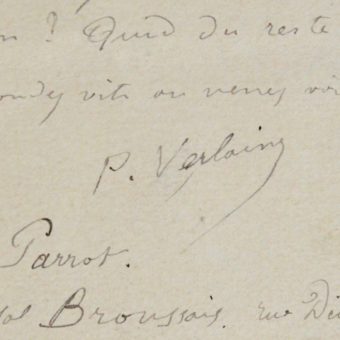 ? Quid du reste
vite ou venez voi
P. Verlaine
Parrot.
Broussais, rue Di